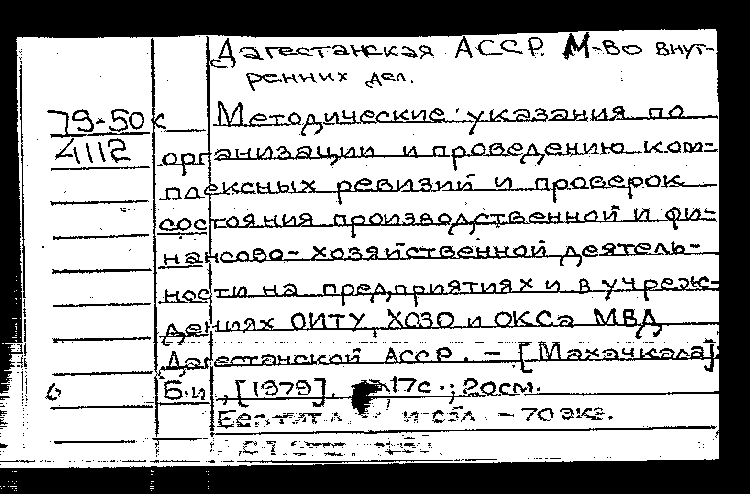 Дагестанская АССР. М-во внут-
ренних дел.
79-50к Методические указания по
4112 организации и проведению ком-
плексных ревизий и проверок
состояния производственной и фи-
нансово-хозяйственной деятель-
ности на предприятиях и в учреж-
дениях ОИТУ, ХОЗО и ОКСа МВД
Дагестанской АССР. - [Махачкала]:
б Б.и., [1979]. 17с.; 20см.
Без тит. л. и обл. - 70 экз.